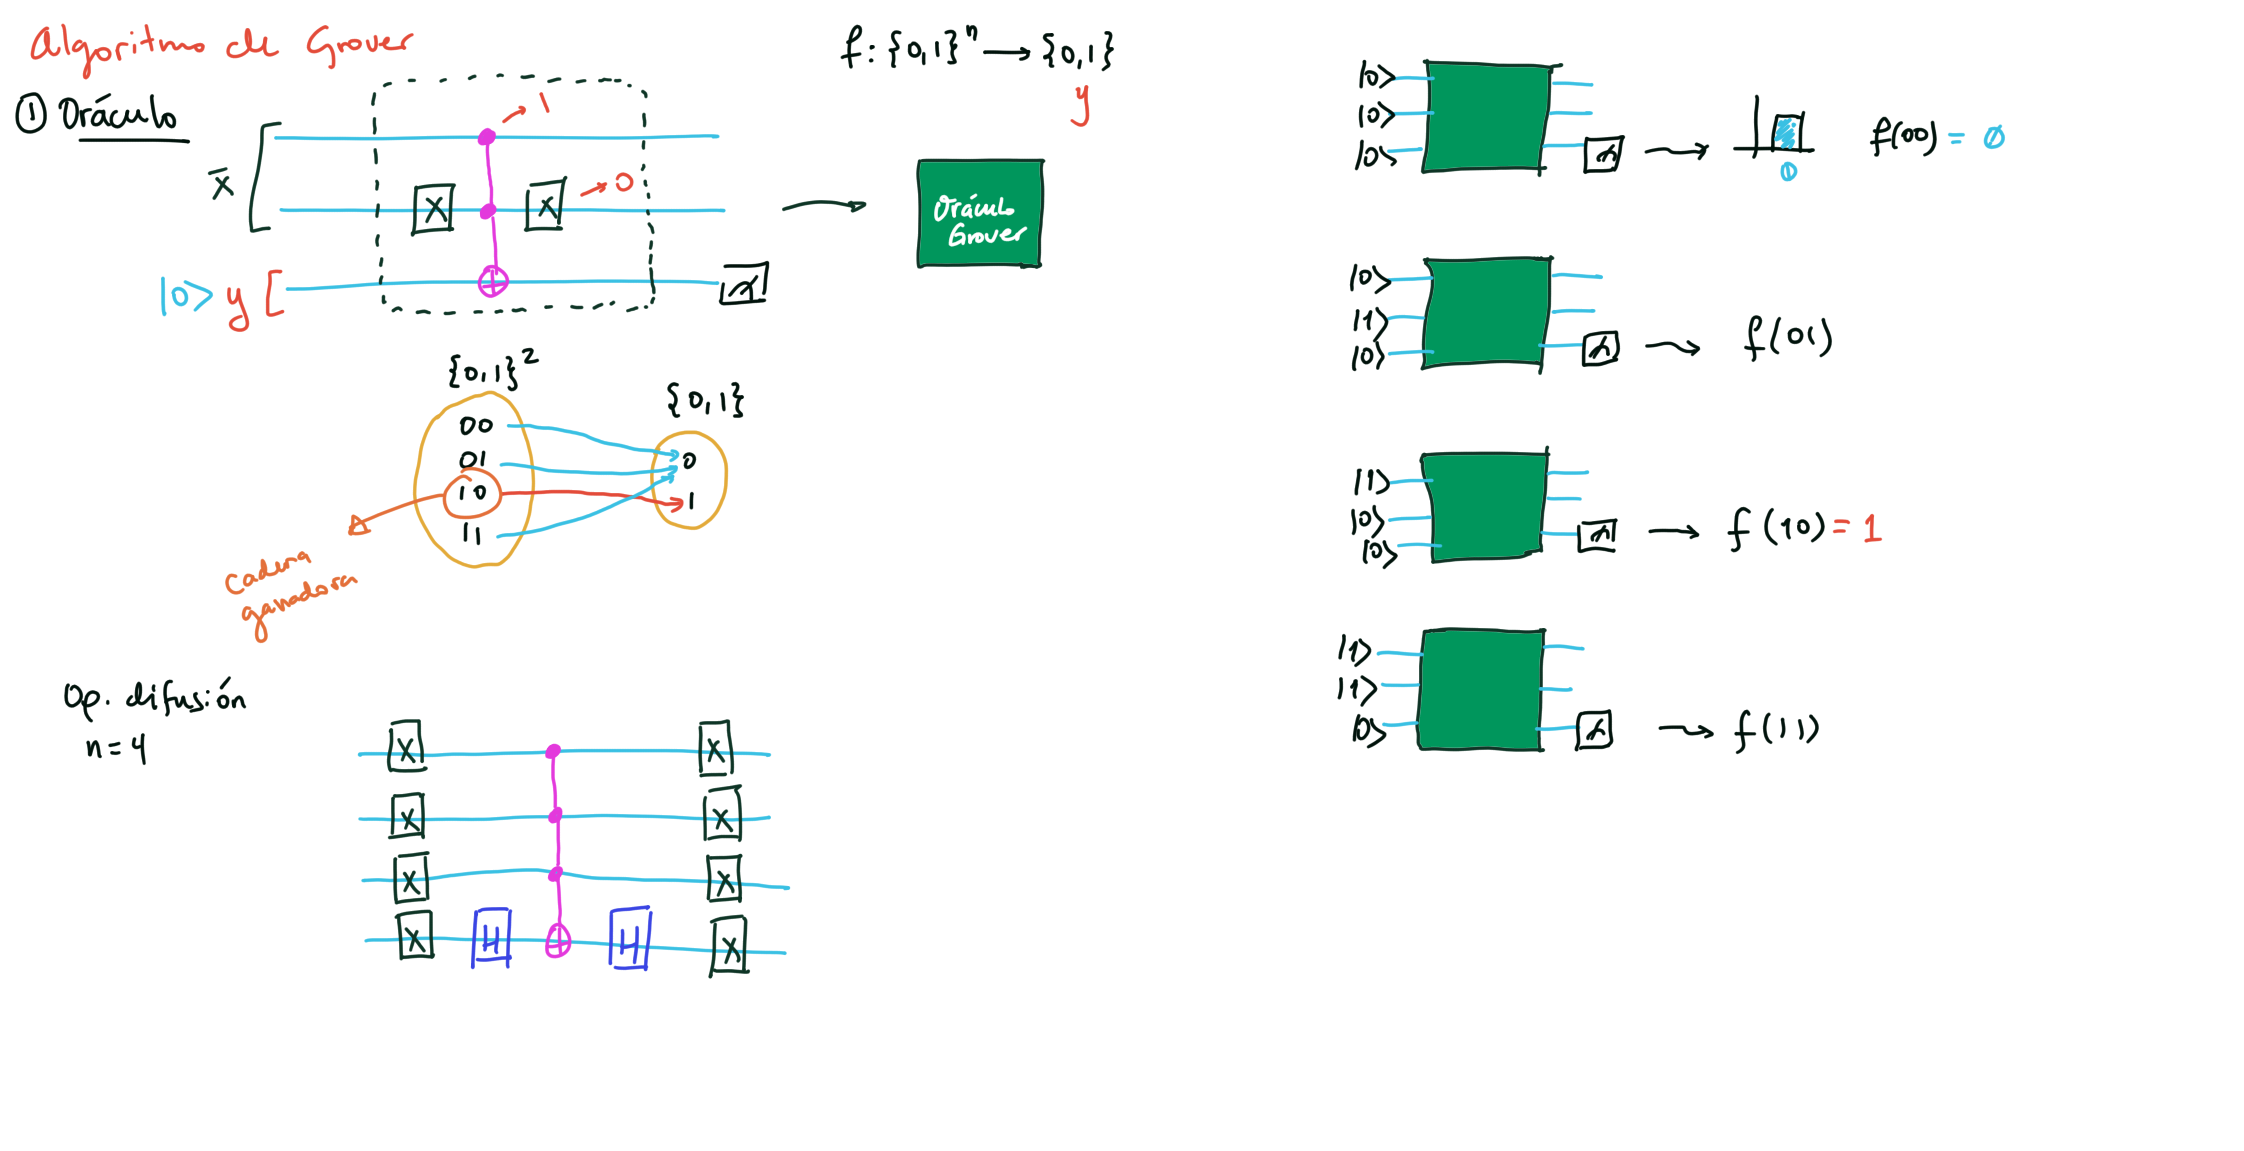 Algoritmo de Grover
① Oráculo
f: {0,1}ⁿ → {0,1}
y
1
x̄
X
X
0
|0> y [
Oráculo
Grover
{0,1}²
{0,1}
00
01
10
11
0
1
Cadena
ganadora
Op. difusión
n=4
X
X
X
X
X
X
X
H
H
X
|0>
|0>
|0>
0
f(00) = 0
|0>
|1>
|0>
f(01)
|1>
|0>
|0>
f(10) = 1
|1>
|1>
|0>
f(11)